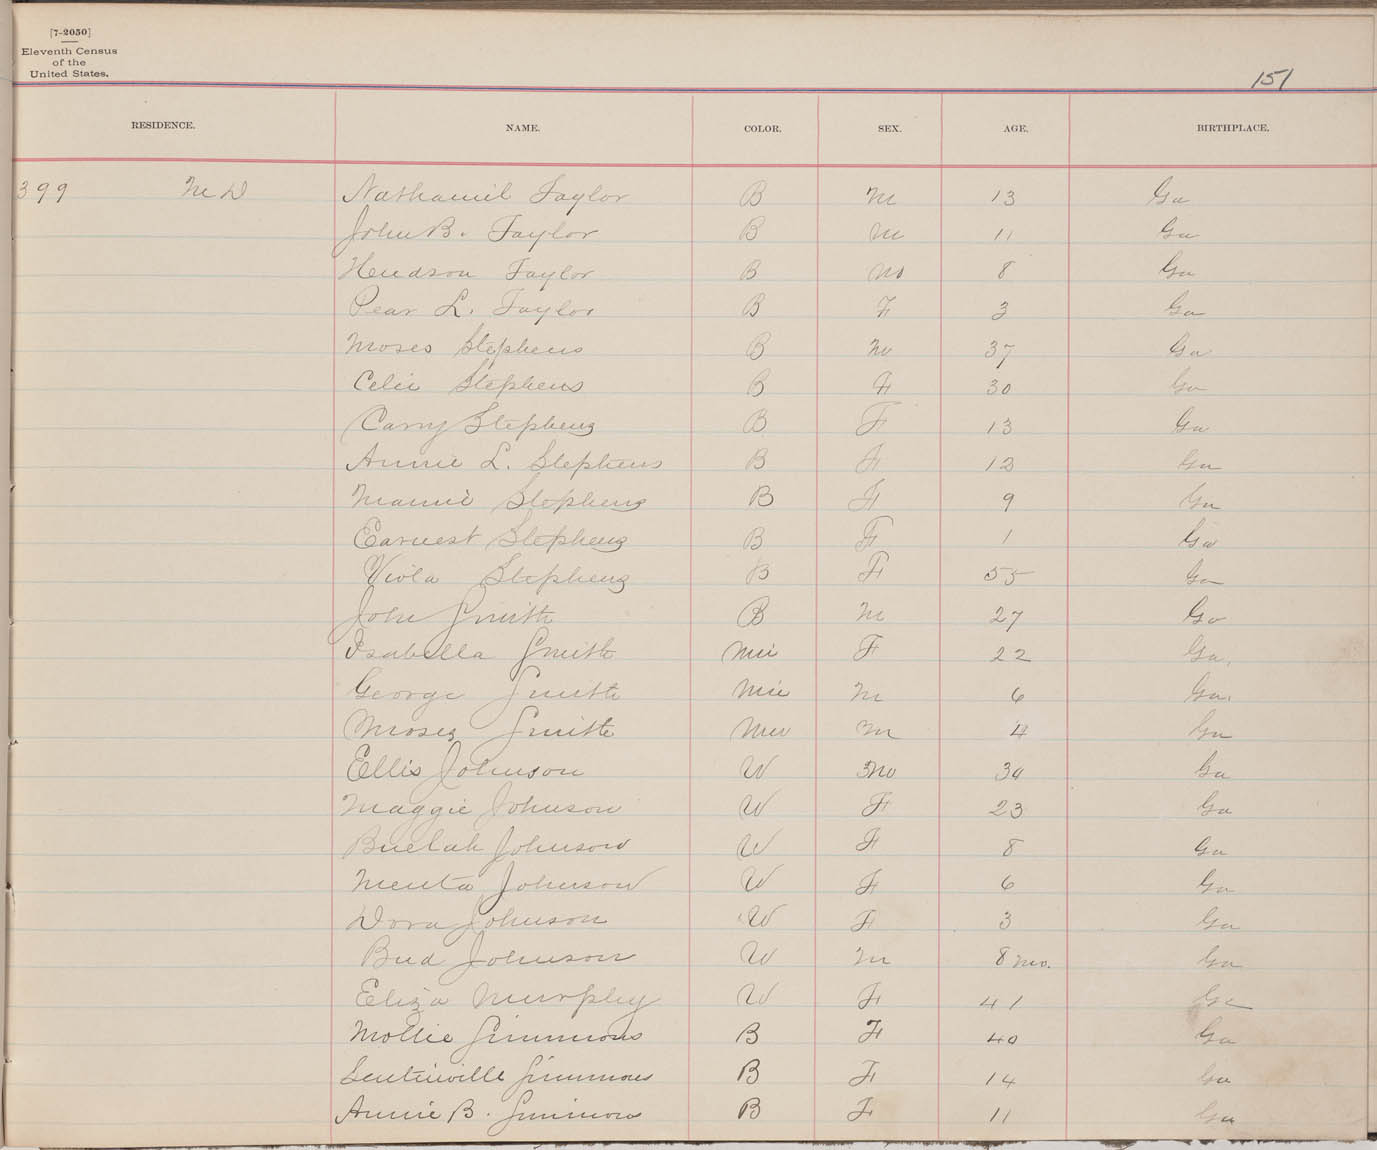 [7-2050]
Eleventh Census
of the
United States.
151
RESIDENCE. NAME. COLOR. SEX. AGE. BIRTHPLACE.
399 M D Nathaniel Taylor B M 13 Ga
John B. Taylor B M 11 Ga
Hendson Taylor B M 8 Ga
Pear L. Taylor B F 3 Ga
Moses Stephens B M 37 Ga
Celie Stephens B F 30 Ga
Carry Stephens B F 13 Ga
Annie L. Stephens B F 12 Ga
Mamie Stephens B F 9 Ga
Earnest Stephens B F 1 Ga
Viola Stephens B F 55 Ga
John Smith B M 27 Ga
Isabella Smith Mu F 22 Ga.
George Smith Mu M 6 Ga.
Moses Smith Mu M 4 Ga
Ellis Johnson W M 30 Ga
Maggie Johnson W F 23 Ga
Buelah Johnson W F 8 Ga
Menta Johnson W F 6 Ga
Dora Johnson W F 3 Ga
Bud Johnson W M 8 mo. Ga
Eliza Murphy W F 41 Ga
Mollie Simmons B F 40 Ga
Simmons B F 14 Ga
Annie B. Simmons B F 11 Ga